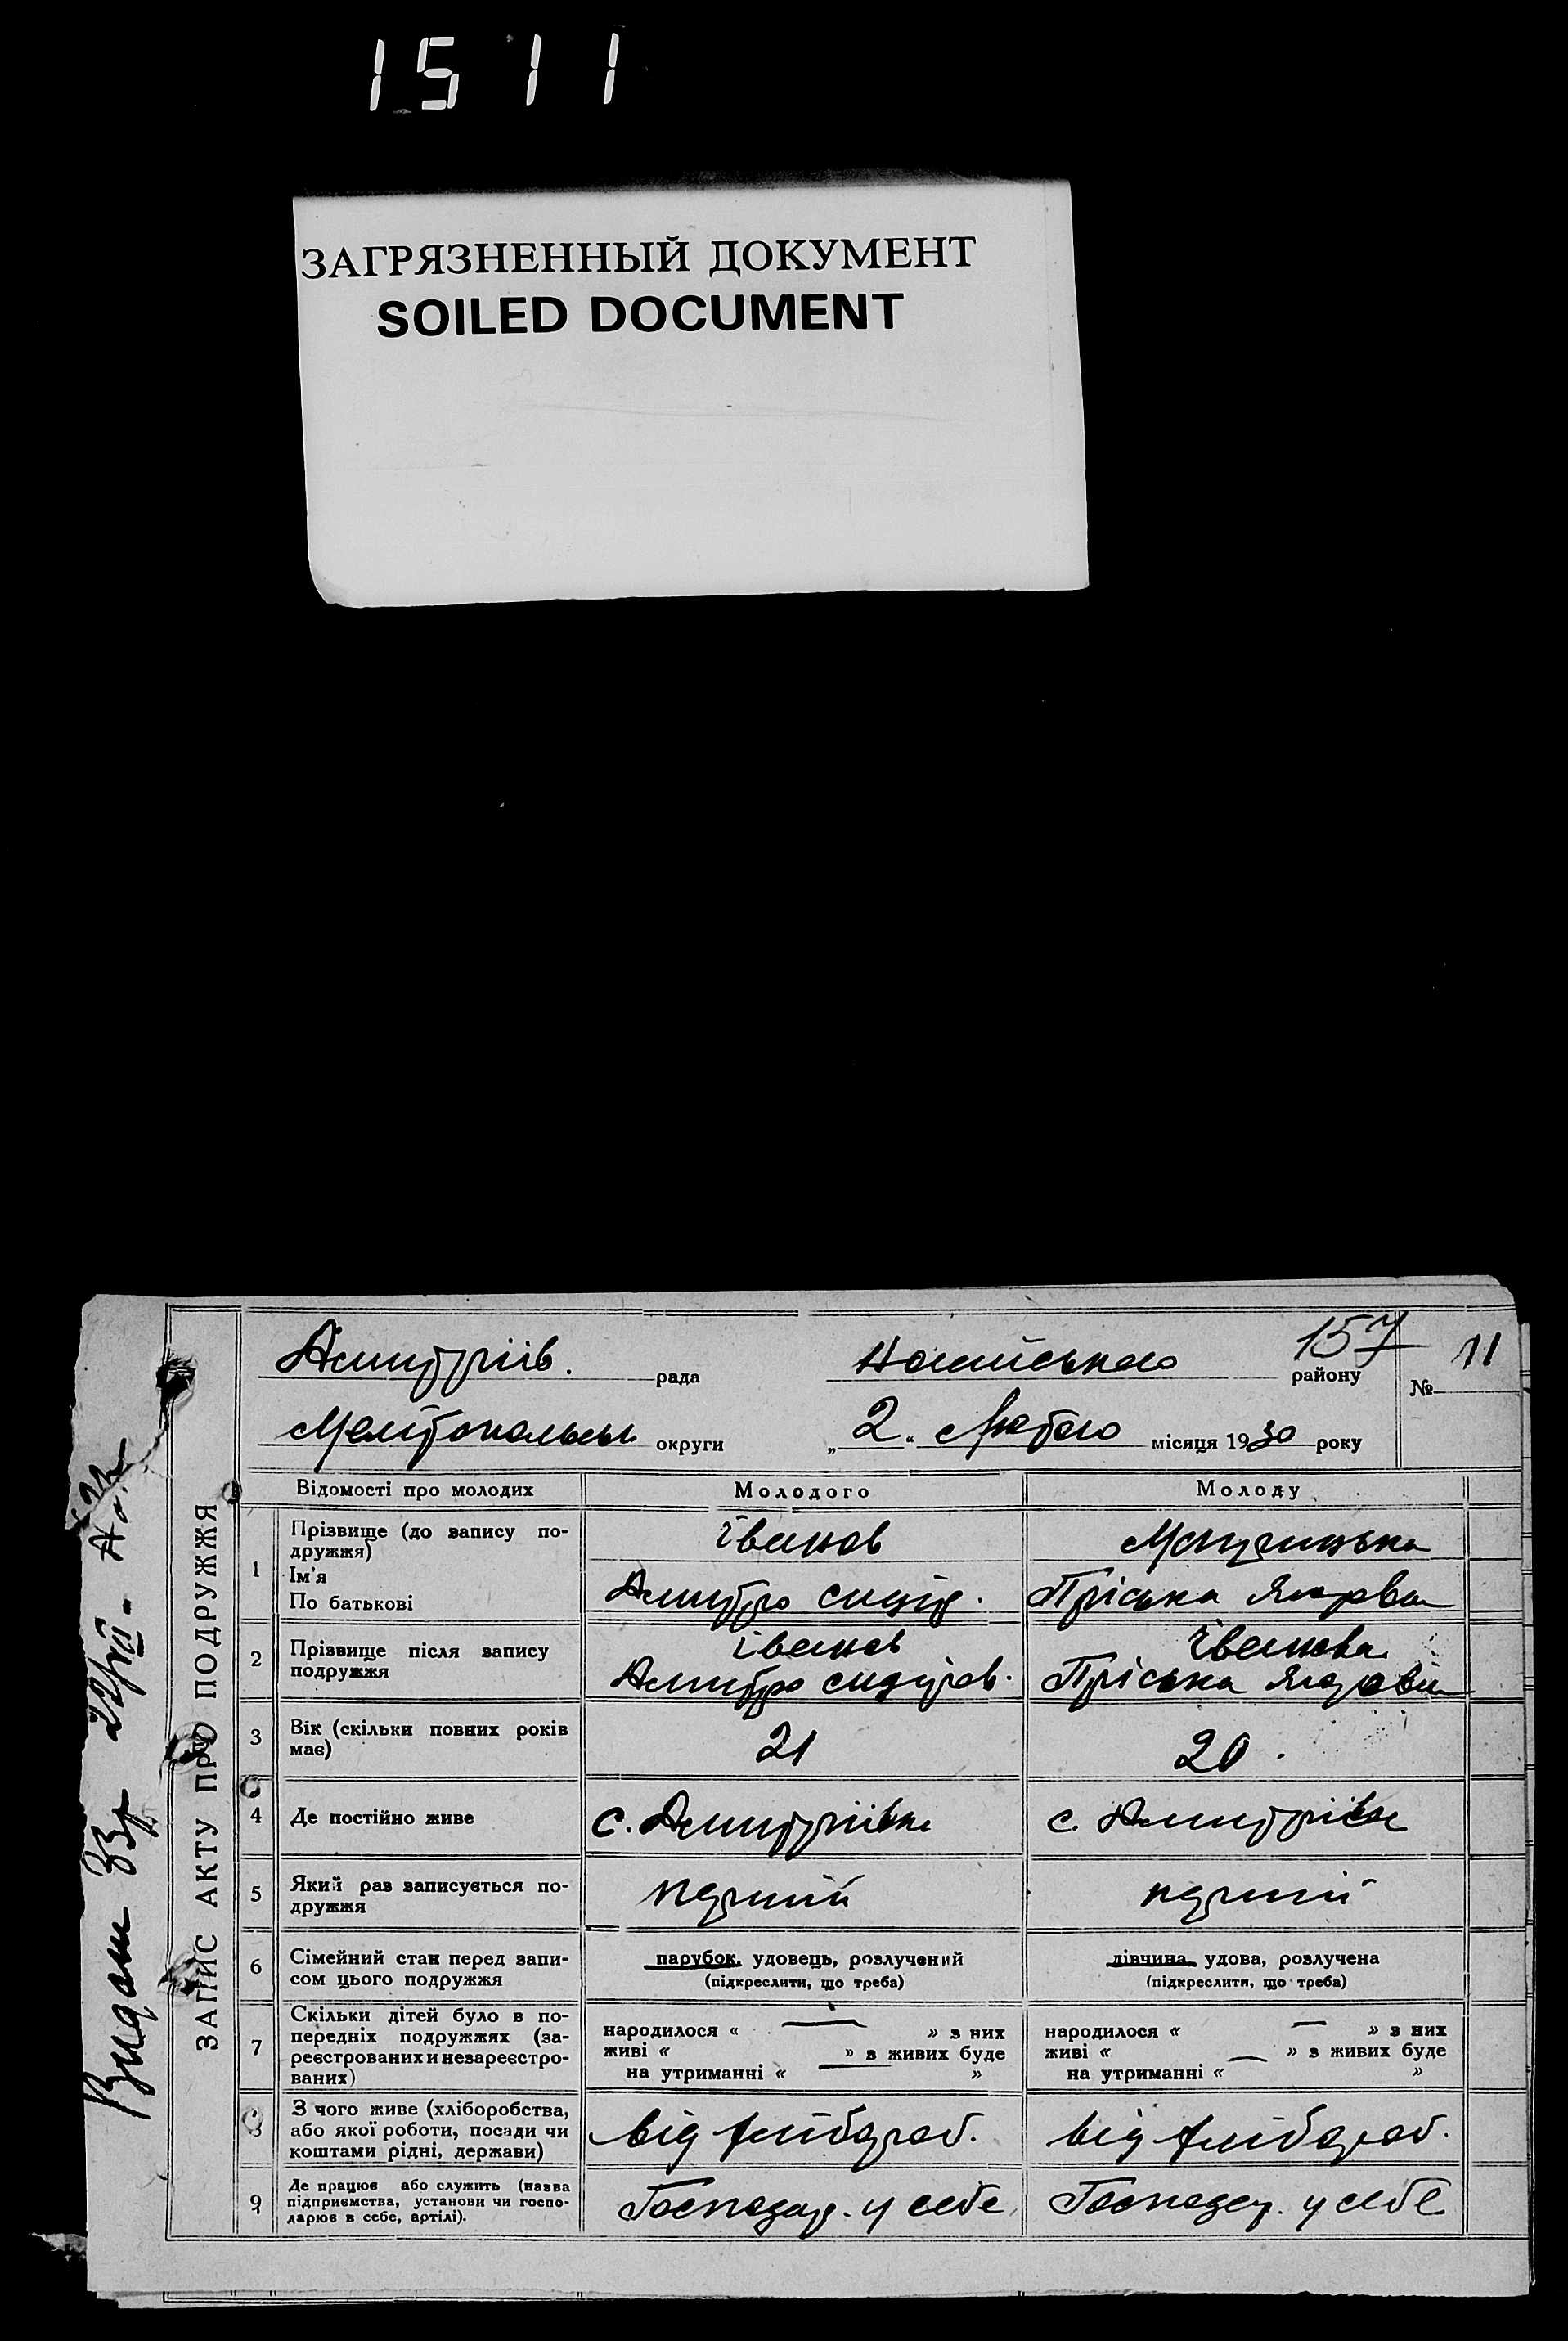 1511
ЗАГРЯЗНЕННЫЙ ДОКУМЕНТ
SOILED DOCUMENT
157
Дмитріїв. рада Ногайського району № 11
округи „2“ Лютого місяця 1930 року
ЗАПИС АКТУ ПРО ПОДРУЖЖЯ
Відомості про молодих Молодого Молоду
1 Прізвище (до запису по-
дружжя)
Ім'я
По батькові
Іванов
Дмитро Сидір.
Пріська
2 Прізвище після запису
подружжя
Іванов
Дмитро Сидоров.
Іванова
Пріська
3 Вік (скільки повних років
має)
21
20
4 Де постійно живе
с. Дмитріївка
с. Дмитрівка
5 Який раз записується по-
дружжя
перший
перший
6 Сімейний стан перед запи-
сом цього подружжя
парубок, удовець, розлучений
(підкреслити, що треба)
дівчина, удова, розлучена
(підкреслити, що треба)
7 Скільки дітей було в по-
передніх подружжях (за-
реєстрованих и незареєстро-
ваних)
народилося « — » з них
живі « » з живих буде
на утриманні « — »
народилося « — » з них
живі « » з живих буде
на утриманні « — »
8 З чого живе (хліборобства,
або якої роботи, посади чи
коштами рідні, держави)
від хлібороб.
від хлібороб.
9 Де працює або служить (назва
підприємства, установи чи госпо-
дарює в себе, артілі).
Господар. у себе
Господар. у себе